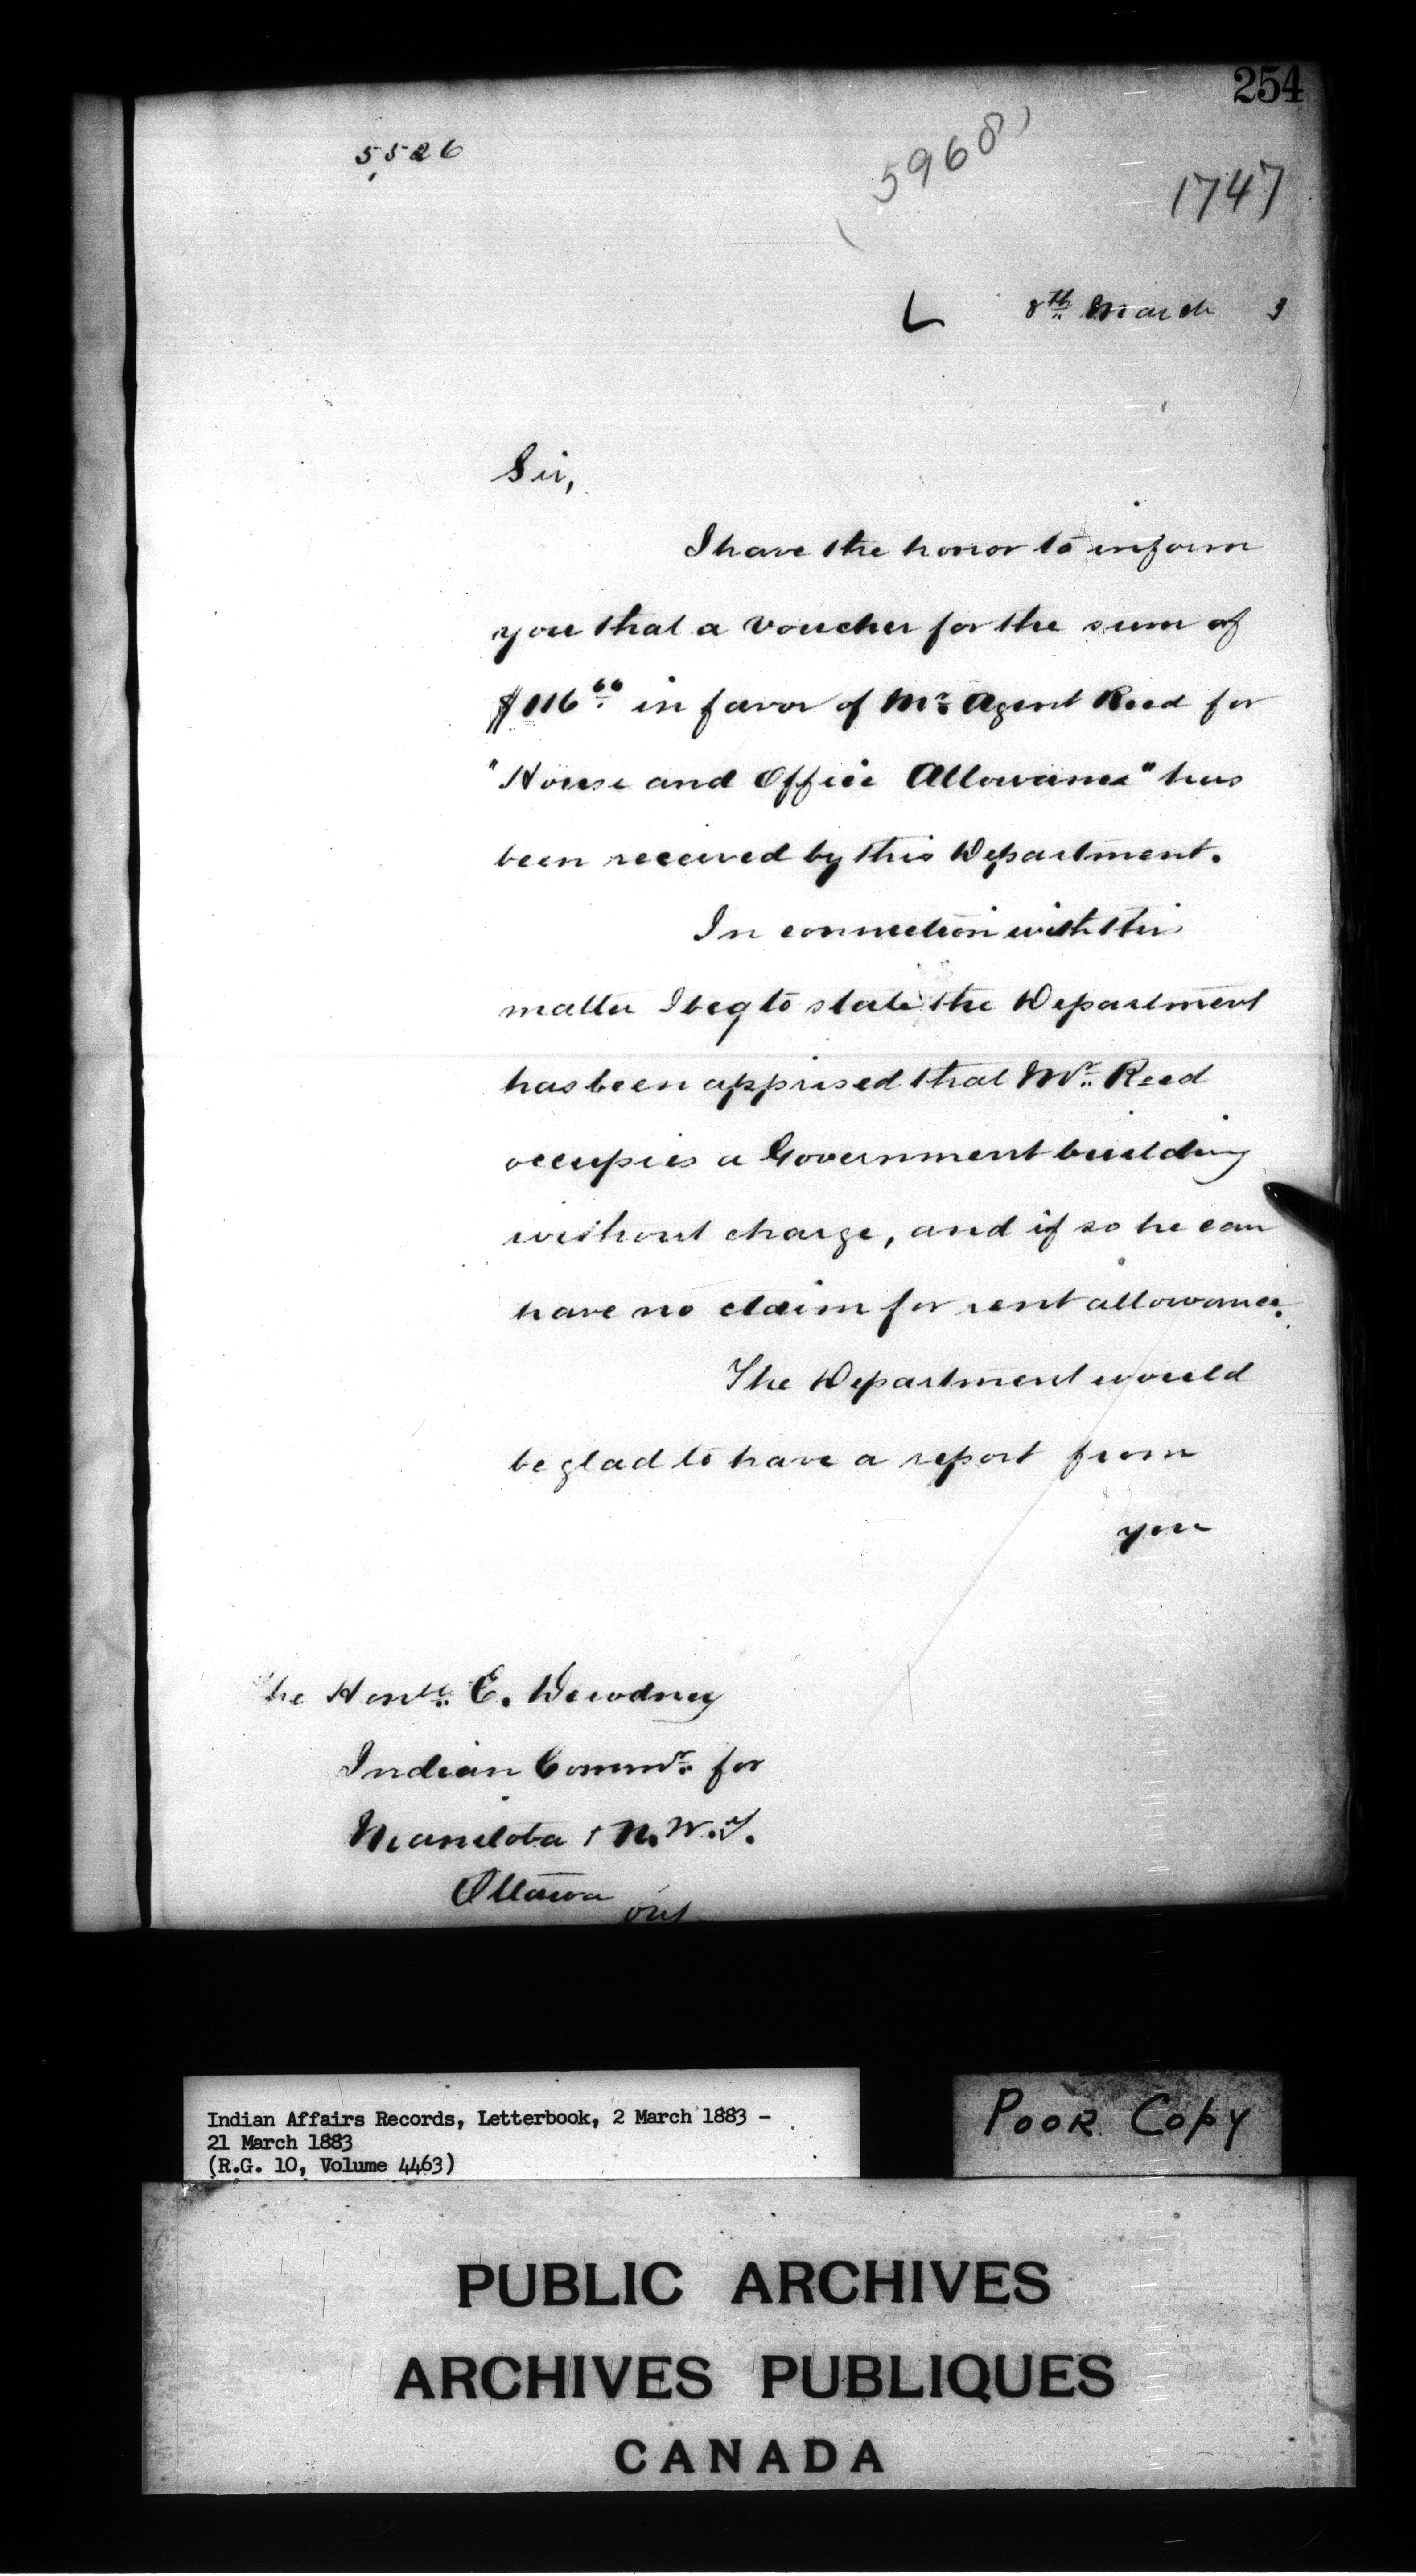 254
5526
(5968)
1747
L 8th March 3
Sir,
I have the honor to inform
you that a voucher for the sum of
$116 66 in favor of Mr. Agent Reed for
"House and Office Allowance" has
been received by this Department.
In connection with this
matter I beg to state the Department
has been apprised that Mr. Reed
occupies a Government building
without charge, and if so he can
have no claim for rent allowance.
The Department would
be glad to have a report from
you
he Honble. E. Dewdney
Indian Commr. for
Manitoba & N.W.T.
Ottawa
Indian Affairs Records, Letterbook, 2 March 1883 -
21 March 1883
(R.G. 10, Volume 4463)
POOR COPY
PUBLIC ARCHIVES
ARCHIVES PUBLIQUES
CANADA